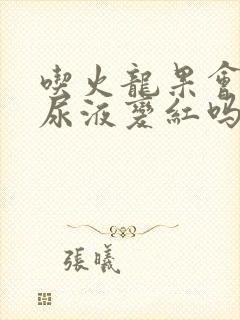 喫火龍果會
尿液變紅嗎
張曦